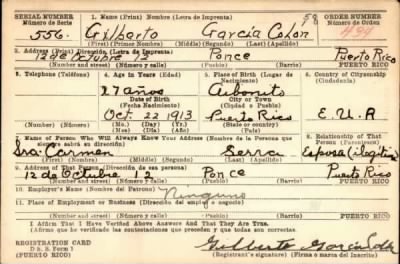 SERIAL NUMBER
Número de Serie
1. Name (Print) Nombre (Letra de Imprenta)
58
ORDER NUMBER
Número de Orden
556. Gilberto García Colon
(First) (Primer Nombre) (Middle) (Segundo) (Last) (Apellido)
2. Address (Print) Dirección (Letra de Imprenta)
12 de Octubre 12 Ponce Puerto Rico
(Number and street) (Número y calle) (Town) (Pueblo) (Barrio) PUERTO RICO
3. Telephone (Teléfono)
4. Age in Years (Edad)
27 años
Date of Birth
(Fecha Nacimiento)
Oct. 22 1913
(Mo.) (Day) (Yr.)
(Mes) (Día) (Año)
5. Place of Birth (Lugar de Nacimiento)
Aibonito
City or Town
(Ciudad o Pueblo)
Puerto Rico
(State or country)
6. Country of Citizenship
(Ciudadanía)
E.U.A
7. Name of Person Who Will Always Know Your Address (Nombre de la Persona que siempre sabrá su dirección)
Sra. Carmen Serra
(First) (Nombre) (Middle) (Segundo) (Last) (Apellido)
8. Relationship of That Person (Parentesco)
Esposa
9. Address of That Person (Dirección de esa persona)
12 de Octubre 12 Ponce Puerto Rico
(Number and street) (Número y calle) (Town) (Pueblo) (Barrio) PUERTO RICO
10. Employer's Name (Nombre del Patrono)
Ninguno
11. Place of Employment or Business (Dirección del empleo o negocio)
(Number and street) (Número y calle) (Town) (Pueblo) (Barrio) PUERTO RICO
I Affirm That I Have Verified Above Answers And That They Are True.
(Afirmo que he verificado las contestaciones que preceden y que todas son correctas)
REGISTRATION CARD
D. S. S. Form 1
PUERTO RICO
Gilberto García Colon
(Registrant's signature) (Firma o marca del inscrito)